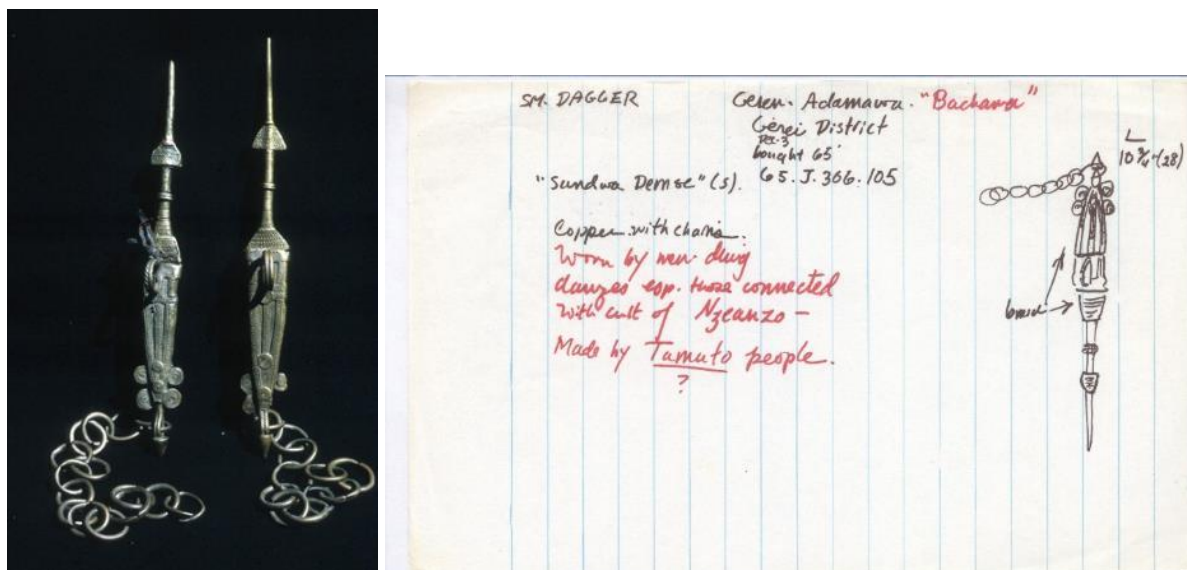 SM. DAGGER
Geren. Adamawa. "Bachama"
Gerei District
bought 65'
65.J.306.105
"Sundwa Demse" (s).
L
10 3/4" (28)
Copper with chains.
Worn by men durg
danzes esp. those connected
with cult of Nzeanzo -
Made by Tamuto people.
?